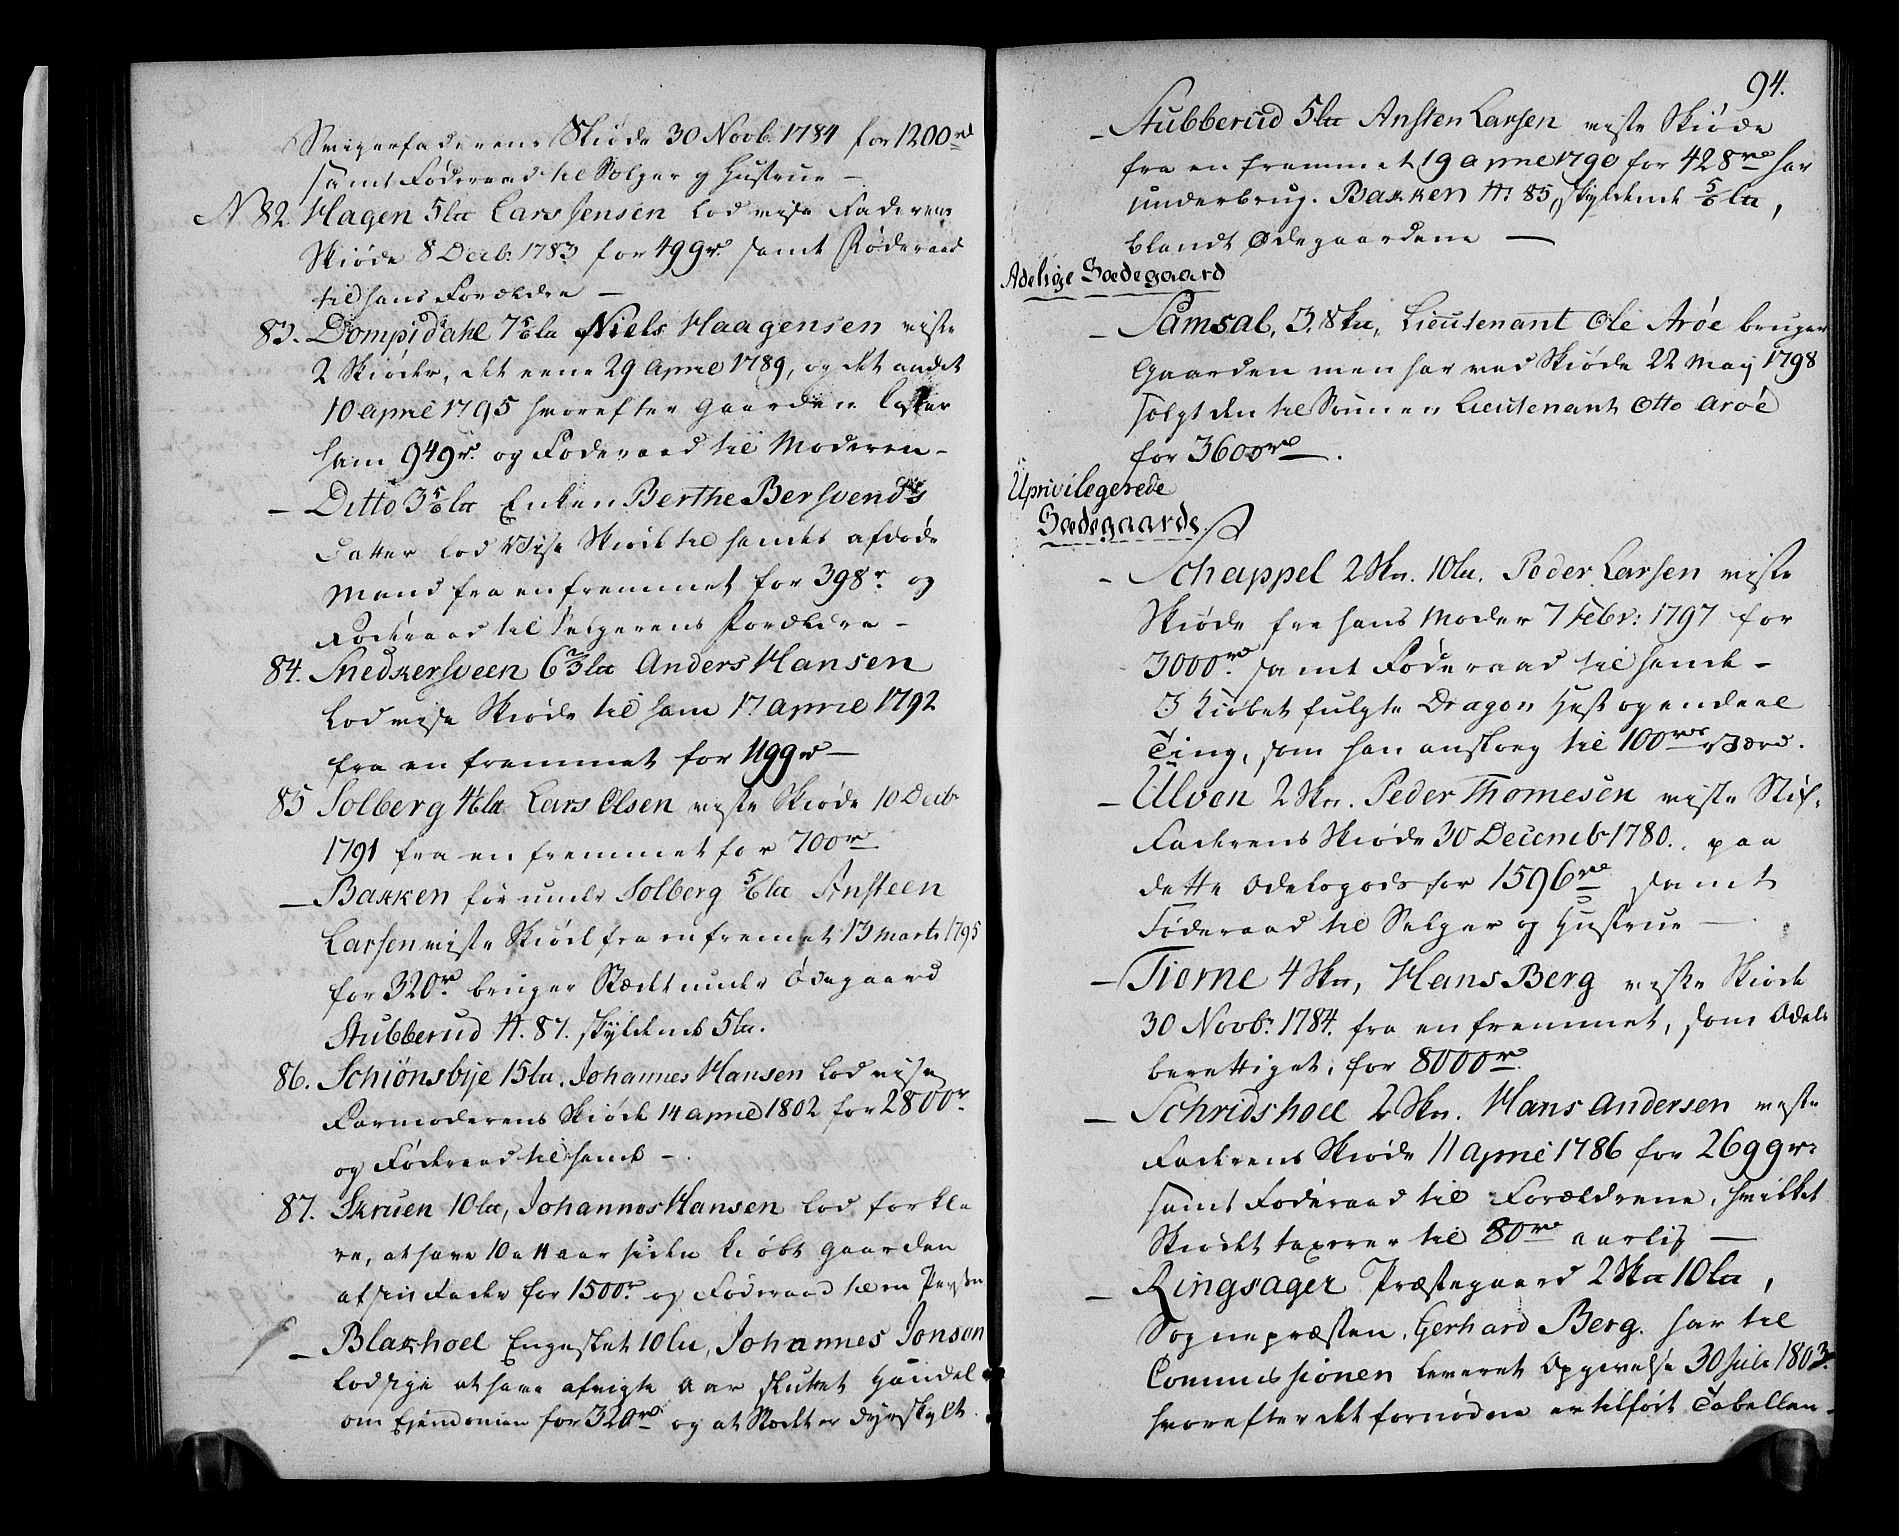 Svigerfaderens Skiøde 30 Novb. 1784 for 1200 rd
samt Føderaad til Sælger og Hustrue —
N. 82. Hagen 5 lu Lars Jensen lod vise Faderens
Skiøde 8 Decb: 1783 for 499 r. samt Føderaad
til hans Forældre —
83. Dompidahl 7 5/6 lu Niels Haagensen viste
2 Skiøder, det eene 29 April 1789, og det andet
10 april 1795 hvorefter Gaarden koster
ham 949 r. og Føderaad til Moderen —
— Ditto 3 5/6 lu Enken Berthe Bersvends
Datter lod Vise Skiøde til hendes afdøde
Mand fra en fremmet for 398 r. og
Føderaad til Selgerens Forældre —
84. Snedkersveen 6 2/3 lu Anders Hansen
lod vise Skiøde til ham 17. april 1792
fra en fremmet for 499 r —
85 Solberg 4 1/6 lu Lars Olsen viste Skiøde 10 Decb
1791 fra en fremmet for 700 rd
— Bakken før under Solberg 5/6 lu Ansteen
Larsen viste Skiøde fra en fremmet 13 Marts 1795
for 320 rd. bruger Stædet under Ødegaard
Stubberud N. 87. skyldende 5 lu.
86. Schiønsbye 15 lu. Johannes Hansen lod vise
Farmoderens Skiøde 14 april 1802 for 2800 r.
og Føderaad til hende —
87. Skruen 10 lu, Johannes Hansen lod forkla
re, at have 10 a 11 aar siden kiøbt gaarden
af sin Fader for 1500 r. og Føderaad til en Person
— Blakhoel Engeslet 10 lu, Johannes Jonsen
lod sige at have afvigte Aar sluttet Handel
om Ejendomen for 320 rd og at Stædet er dyrskylt.
94.
— Stubberud 5 lu Ansten Larsen viste Skiøde
fra en fremmet 19 april 1790 for 428 rd har
underbrug. Bakken N: 85, skyldende 5/6 lu,
blandt Ødegaardene —
Adelige Sædegaard
— Samsal, 3. Skn, Lieutenant Ole Arøe bruger
Gaarden men har ved Skiøde 22 May 1798
solgt den til Sønnen Lieutenant Otto Arøe
for 3600 rd.
Uprivilegerede
Sædegaarde.
— Schappel 2 Skn. 10 lu. Peder Larsen viste
Skiøde fra hans Moder 7 Febr: 1797 for
3000 rd samt Føderaad til hende —
I Kiøbet fulgte Dragon Hest og endeel
Ting, som han anslog til 100 rds Værd.
— Ulven 2 Skn. Peder Thomesen viste Stif-
Faderens Skiøde 30 Decemb 1780. paa
dette Odelsgods for 1596 rd samt
Føderaad til Selger og Hustrue —
— Tiørne 4 Skn, Hans Berg viste Skiøde
30 Novb. 1784. fra en fremmet, som Odels
berettiget, for 8000 rd.
— Schridshoel 2 Skn. Hans Andersen viste
Faderens Skiøde 11 april 1786 for 2699 r.
samt Føderaad til Forældrene, hvilket
Skiødet taxerer til 80 rd aarlig —
— Ringsager Præstegaard 2 Skn 10 lu,
Sognepræsten, Gerhard Berg. har til
Commissionen leveret Opgivelse 30 Juli 1803.
hvorefter det fornødne er tilført Tabellen.